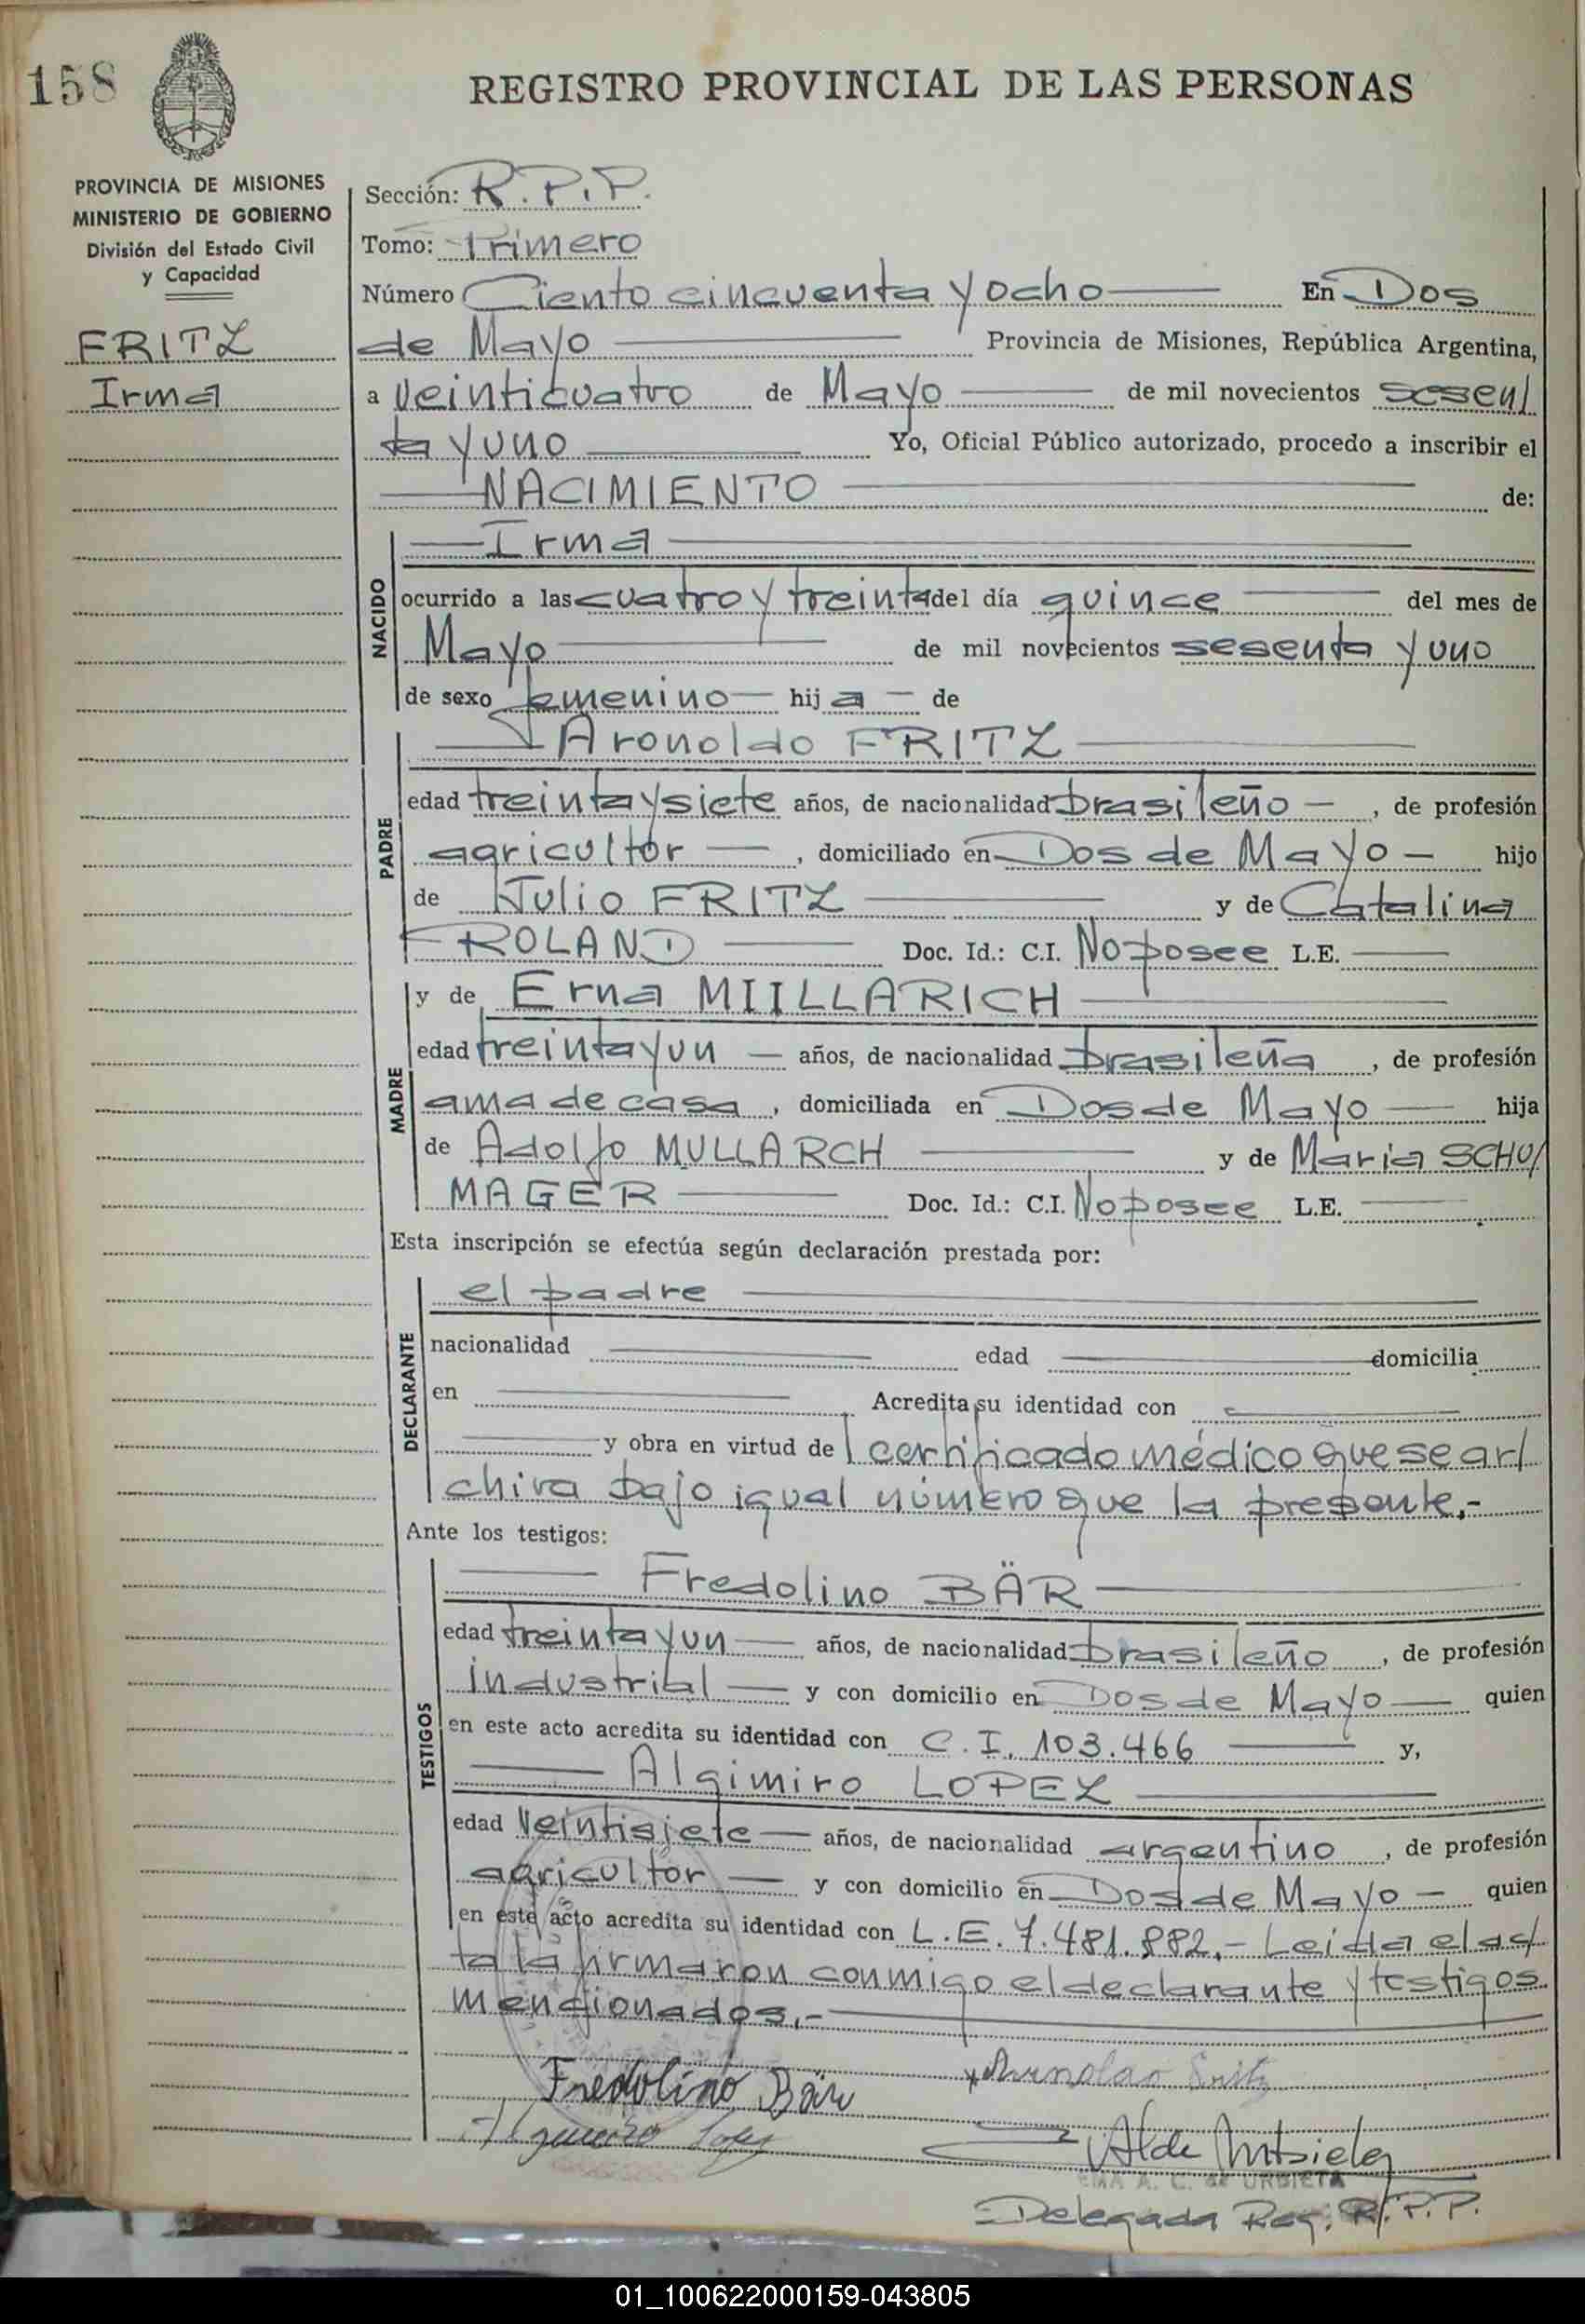 158
REGISTRO PROVINCIAL DE LAS PERSONAS
PROVINCIA DE MISIONES
MINISTERIO DE GOBIERNO
División del Estado Civil
y Capacidad
FRITZ
Irma
Sección: R.P.P.
Tomo: Primero
Número Ciento cincuenta y ocho En Dos
de Mayo Provincia de Misiones, República Argentina,
a veinticuatro de Mayo de mil novecientos sesen/
ta y uno Yo, Oficial Público autorizado, procedo a inscribir el
NACIMIENTO de:
NACIDO
Irma
ocurrido a las cuatro y treinta del día quince del mes de
Mayo de mil novecientos sesenta y uno
de sexo femenino hij a de
PADRE
Aronoldo FRITZ
edad treinta y siete años, de nacionalidad brasileño, de profesión
agricultor, domiciliado en Dos de Mayo hijo
de Julio FRITZ y de Catalina
FROLAND Doc. Id.: C.I. No posee L.E.
MADRE
y de Erna MIILLARICH
edad treinta y un años, de nacionalidad brasileña, de profesión
ama de casa, domiciliada en Dos de Mayo hija
de Adolfo MULLARCH y de Maria SCHU/
MAGER Doc. Id.: C.I. No posee L.E.
Esta inscripción se efectúa según declaración prestada por:
DECLARANTE
el padre
nacionalidad edad domicilia
en Acredita su identidad con
y obra en virtud de l certificado médico que se ar/
chiva bajo igual número que la presente.-
Ante los testigos:
TESTIGOS
Fredolino BÄR
edad treinta y un años, de nacionalidad brasileño, de profesión
industrial y con domicilio en Dos de Mayo quien
en este acto acredita su identidad con C.I. 103.466 y,
Algimiro LOPEZ
edad veintisiete años, de nacionalidad argentino, de profesión
agricultor y con domicilio en Dos de Mayo quien
en este acto acredita su identidad con L.E. 7.481.882.- Leida el ac/
ta la firmaron conmigo el declarante y testigos
mencionados.-
Fredolino Bär
Fritz
DE URBIETA
Delegada Reg. R.P.P.
01_100622000159-043805